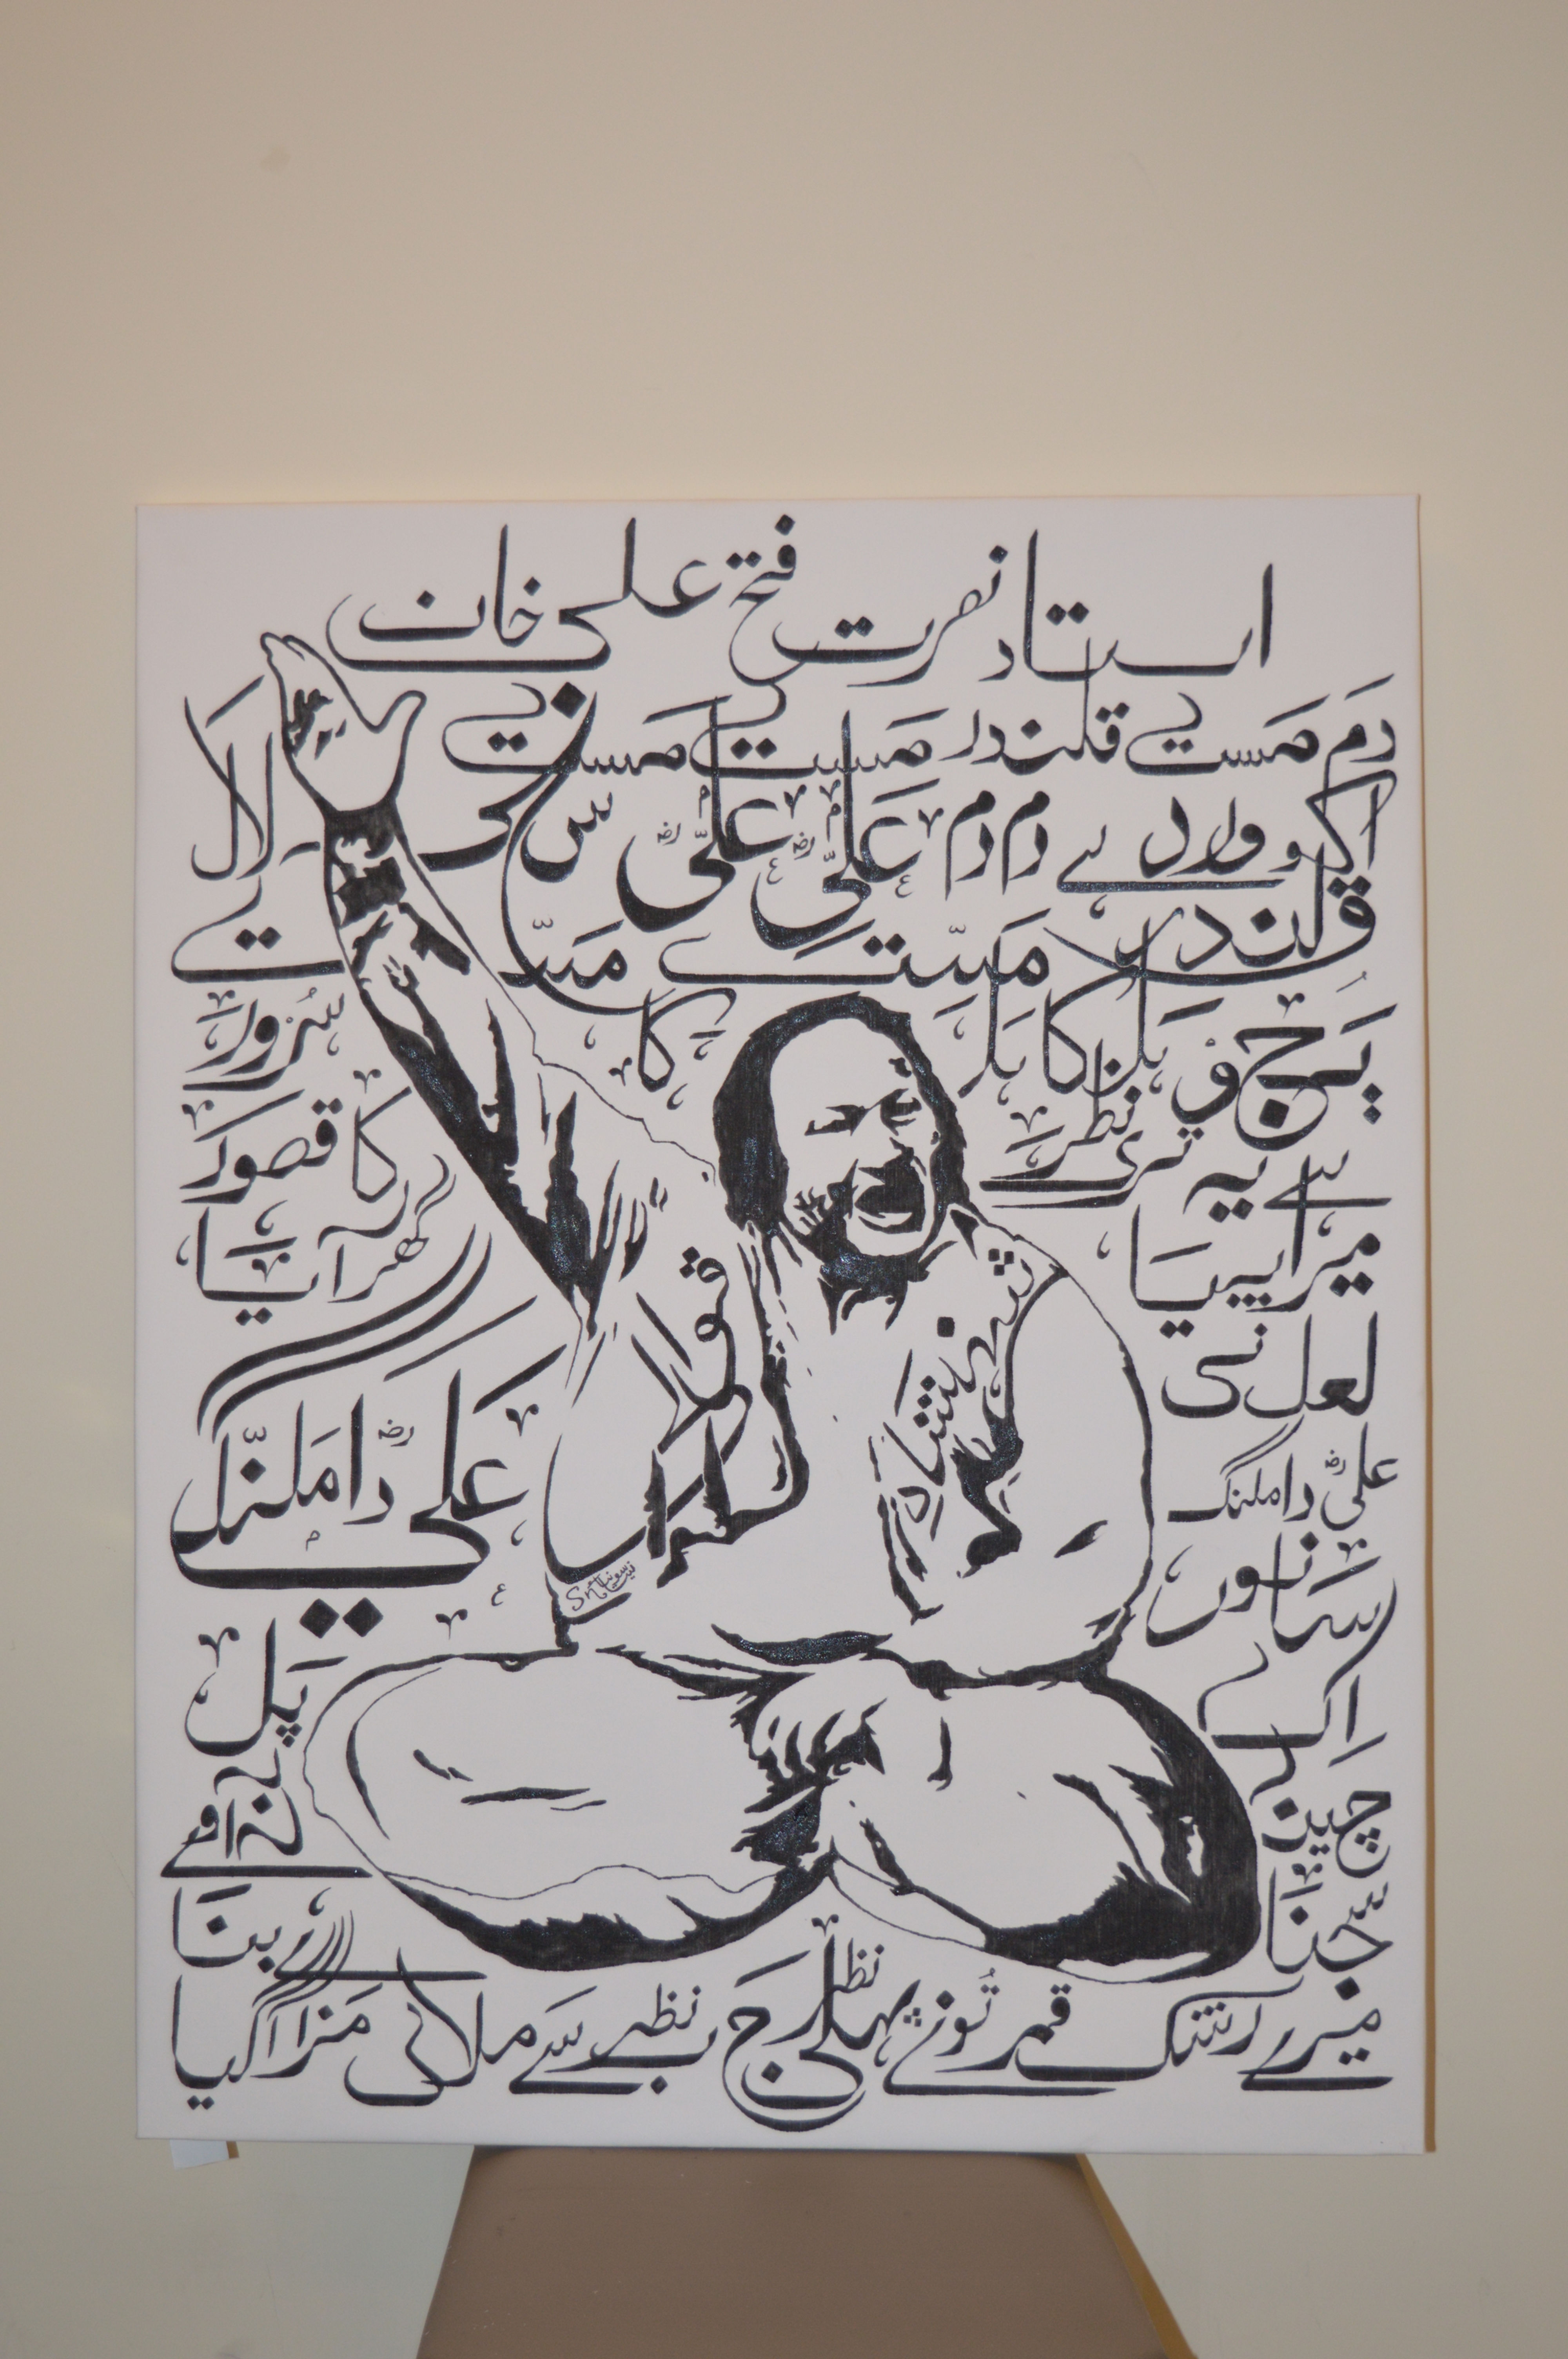 استاد نصرت فتح علی خان
دم مست قلندر مست مست
اکو ورد ہے دم دم علیؓ علیؓ
سخی لال
قلندر مست
ہلکا ہلکا سرور
یہ جو
ہے یہ تیری نظر کا قصور
میرا پیا گھر آیا
لعل نی
شہنشاہ
قوالی
علیؓ دا ملنگ
علیؓ دا ملنگ
سانوں
اک پل
چین نہ آوے
سجنا
بنا
میرے رشک قمر تو نے پہلی نظر
جب نظر سے ملائی مزا آ گیا